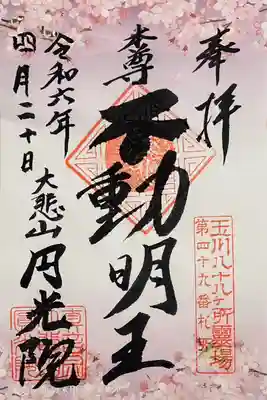 奉拝
玉川八十八ヶ所霊場
第四十九番札所
本尊
不動明王
令和六年
四月二十日
大悲山
円光院